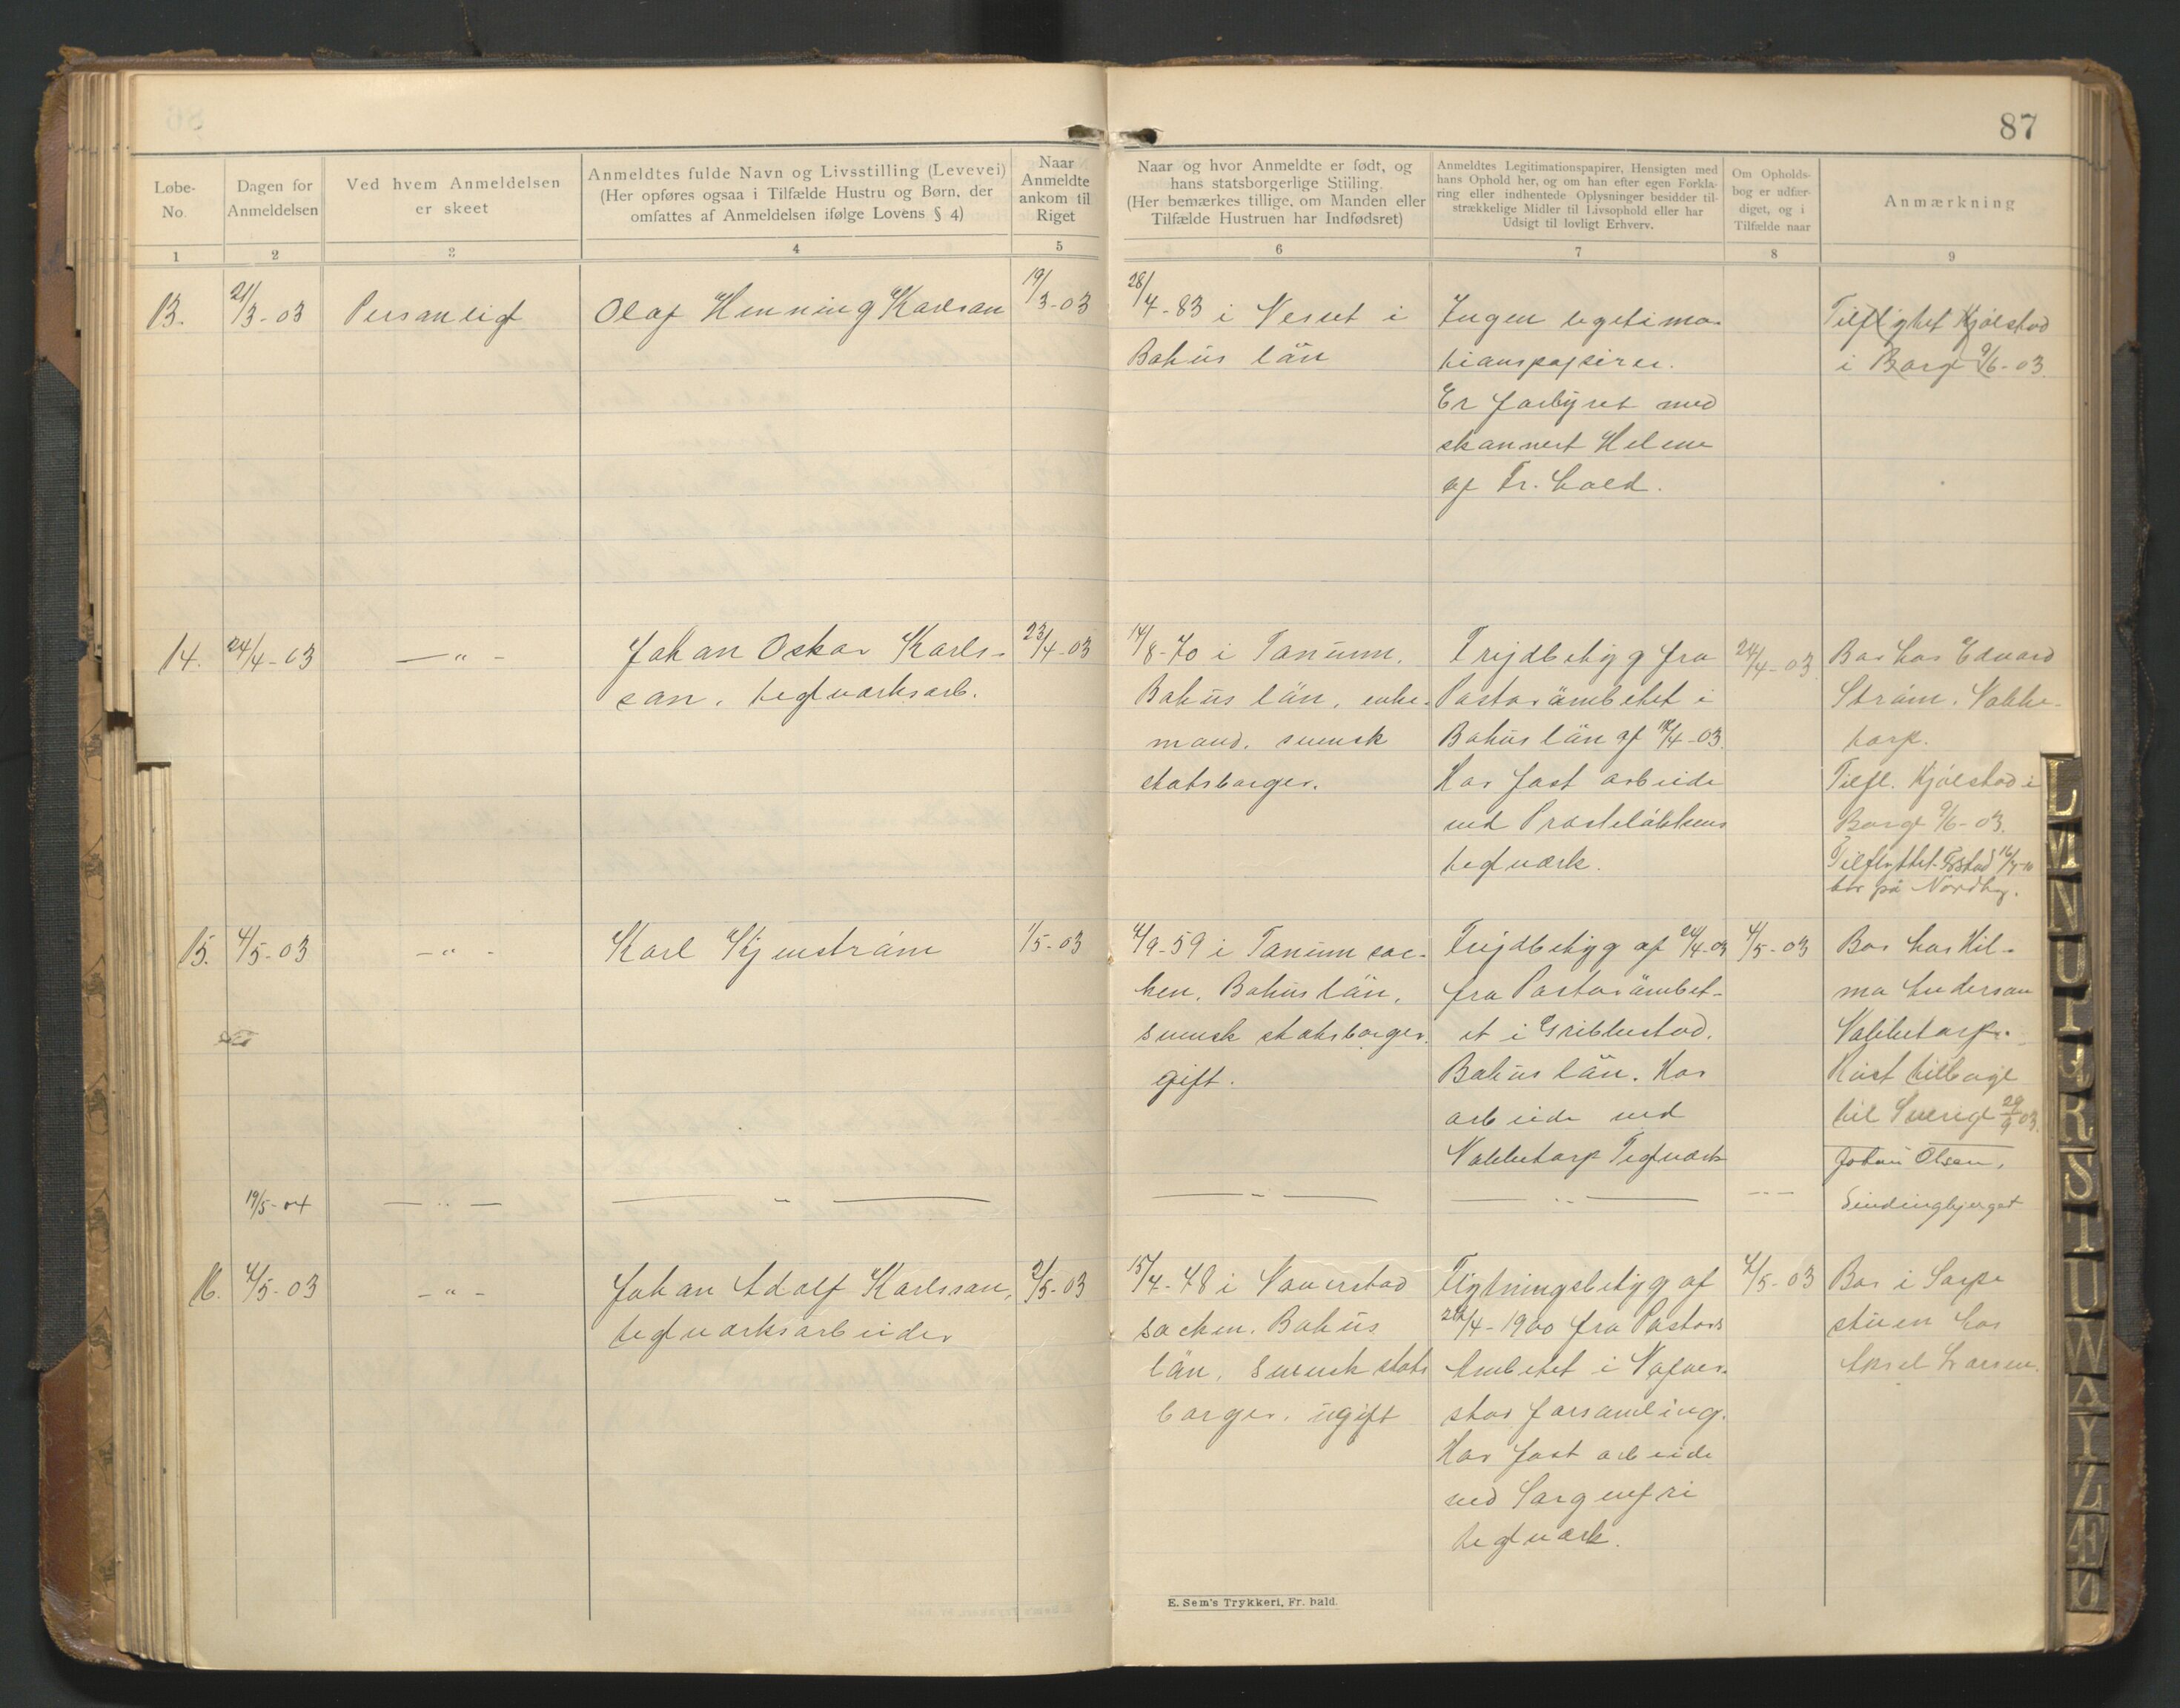 87
Løbe-
No.
Dagen for
Anmeldelsen
Ved hvem Anmeldelsen
er skeet
Anmeldtes fulde Navn og Livsstilling (Levevei)
(Her opføres ogsaa i Tilfælde Hustru og Børn, der
omfattes af Anmeldelsen ifølge Lovens § 4)
Naar
Anmeldte
ankom til
Riget
Naar og hvor Anmeldte er født, og
hans statsborgerlige Stilling.
(Her bemærkes tillige, om Manden eller
Tilfælde Hustruen har Indfødsret)
Anmeldtes Legitimationspapirer, Hensigten med
hans Ophold her, og om han efter egen Forkla-
ring eller indhentede Oplysninger besidder til-
strækkelige Midler til Livsophold eller har
Udsigt til lovligt Erhverv.
Om Opholds-
bog er udfær-
diget, og i
Tilfælde naar
Anmærkning
1 2 3 4 5 6 7 8 9
13.
21/3-03
Personligt
Olaf Henning Karlson
19/3-03
28/4-83 i Nesset i
Bahus län
Ingen legitima-
tionspapirer.
Er forhyret med
skonnert Helene
af Fr. hald.
Tilflyttet Kjølstad
i Borge 9/6-03.
14.
24/4-03
— " -
Johan Oskar Karls-
son, teglværksarb.
23/4-03
14/8-70 i Tanum.
Bahus län, enke-
mand. svensk
statsborger.
Frejdbetyg fra
Pastorämbetet i
Bahus län af /4-03.
Har fast arbeide
ved Presteløkkens
teglværk.
24/4-03
Bor hos Edvard
Strøm. Nabbe-
torp.
Tilfl. Kjølstad i
Borge 9/6-03.
Tilflyttet
bor på Nordby.
15.
4/5-03
— " -
Karl Kjenstrøm
1/5-03
/9-59 i Tanum soc-
ken. Bahus län,
svensk statsborger.
gift.
Frejdbetyg af 24/4-03
fra Pastorämbet-
et i Grebbestad.
Bahus län. Har
arbeide ved
Nabbetorp Teglværk
4/5-03
Bor hos Hil-
ma Anderson
Nabbetorp.
Reist tilbage
til Sverige 29/9 03.
19/5-04
— " —
— " —
— " —
— " —
- " -
Johan Olsen,
Sindingbjerget
16.
4/5-03
- " -
Johan Adolf Karlsson,
teglværksarbeider
2/5-03
15/4-48 i Naverstad
socken. Bahus
län, svensk stats
borger. ugift
Flytningsbetyg af
24/4-1900 fra Pastors
Ambetet i Nafver-
stad forsamling.
Har fast arbeide
ved Sorgenfri
teglværk.
4/5-03
Bor i Sorpe
stuen hos
Aksel Larsen.
E. Sem's Trykkeri, Fr. hald.
L
M
N
O
P
Q
R
S
T
U
W
A
Y
Z
Æ
Ø